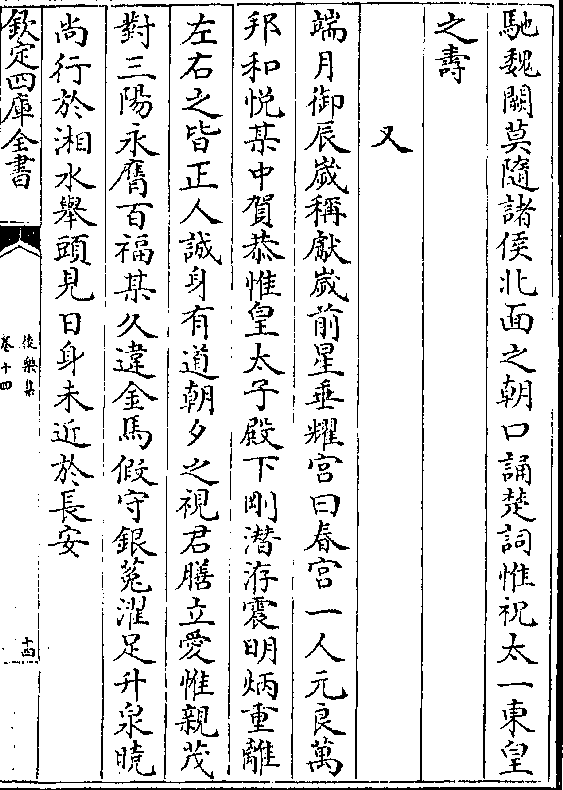 馳魏闕莫隨諸侯北面之朝口誦楚詞惟祝太一東皇
之壽
又
端月御辰嵗稱獻嵗前星垂耀宮曰春宮一人元良萬
邦和悅某中賀恭惟皇太子殿下剛潛洊震明炳重離
左右之皆正人誠身有道朝夕之視君膳立愛惟親茂
對三陽永膺百福某久違金馬假守銀菟濯足升泉曉
尚行於湘水舉頭見日身未近於長安
欽定四庫全書
後樂集
卷十四
十四